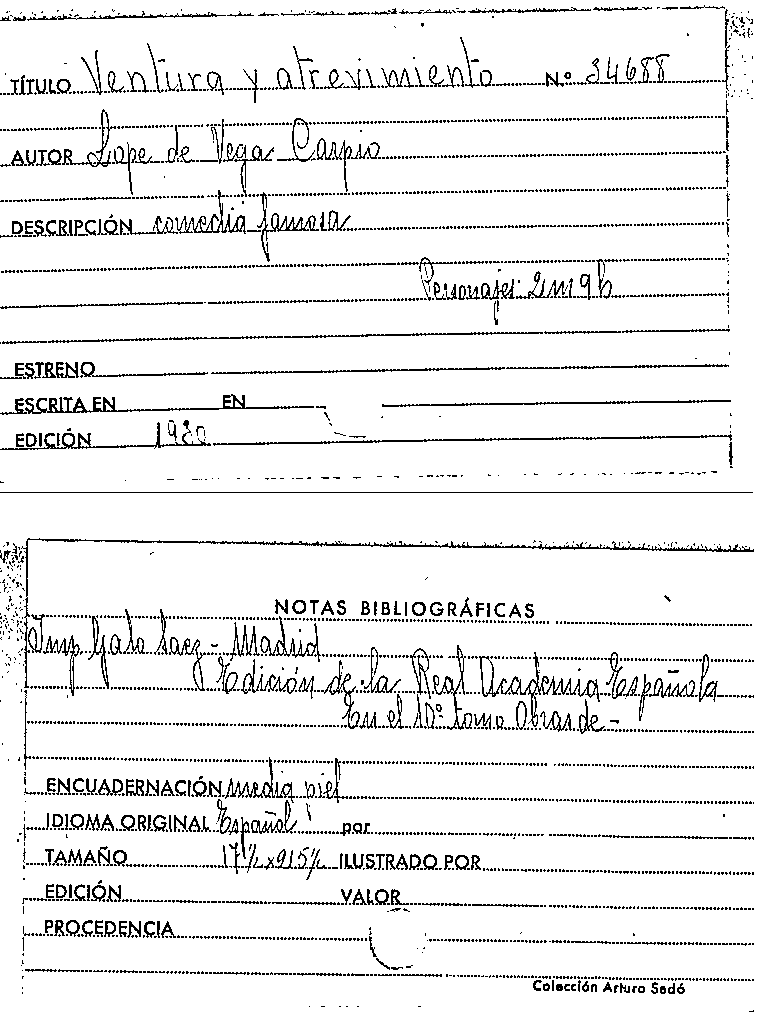 TÍTULO Ventura y atrevimiento Nº 34688
AUTOR Lope de Vega Carpio
DESCRIPCIÓN comedia famosa
Personajes: 2m 9h
ESTRENO
ESCRITA EN EN
EDICIÓN 1930
NOTAS BIBLIOGRÁFICAS
Imp Galo Saez - Madrid
Edición de la Real Academia Española
En el 10º tomo Obras de -
ENCUADERNACIÓN media piel
IDIOMA ORIGINAL Español por
TAMAÑO ILUSTRADO POR
EDICIÓN VALOR
PROCEDENCIA
Colección Arturo Sedó